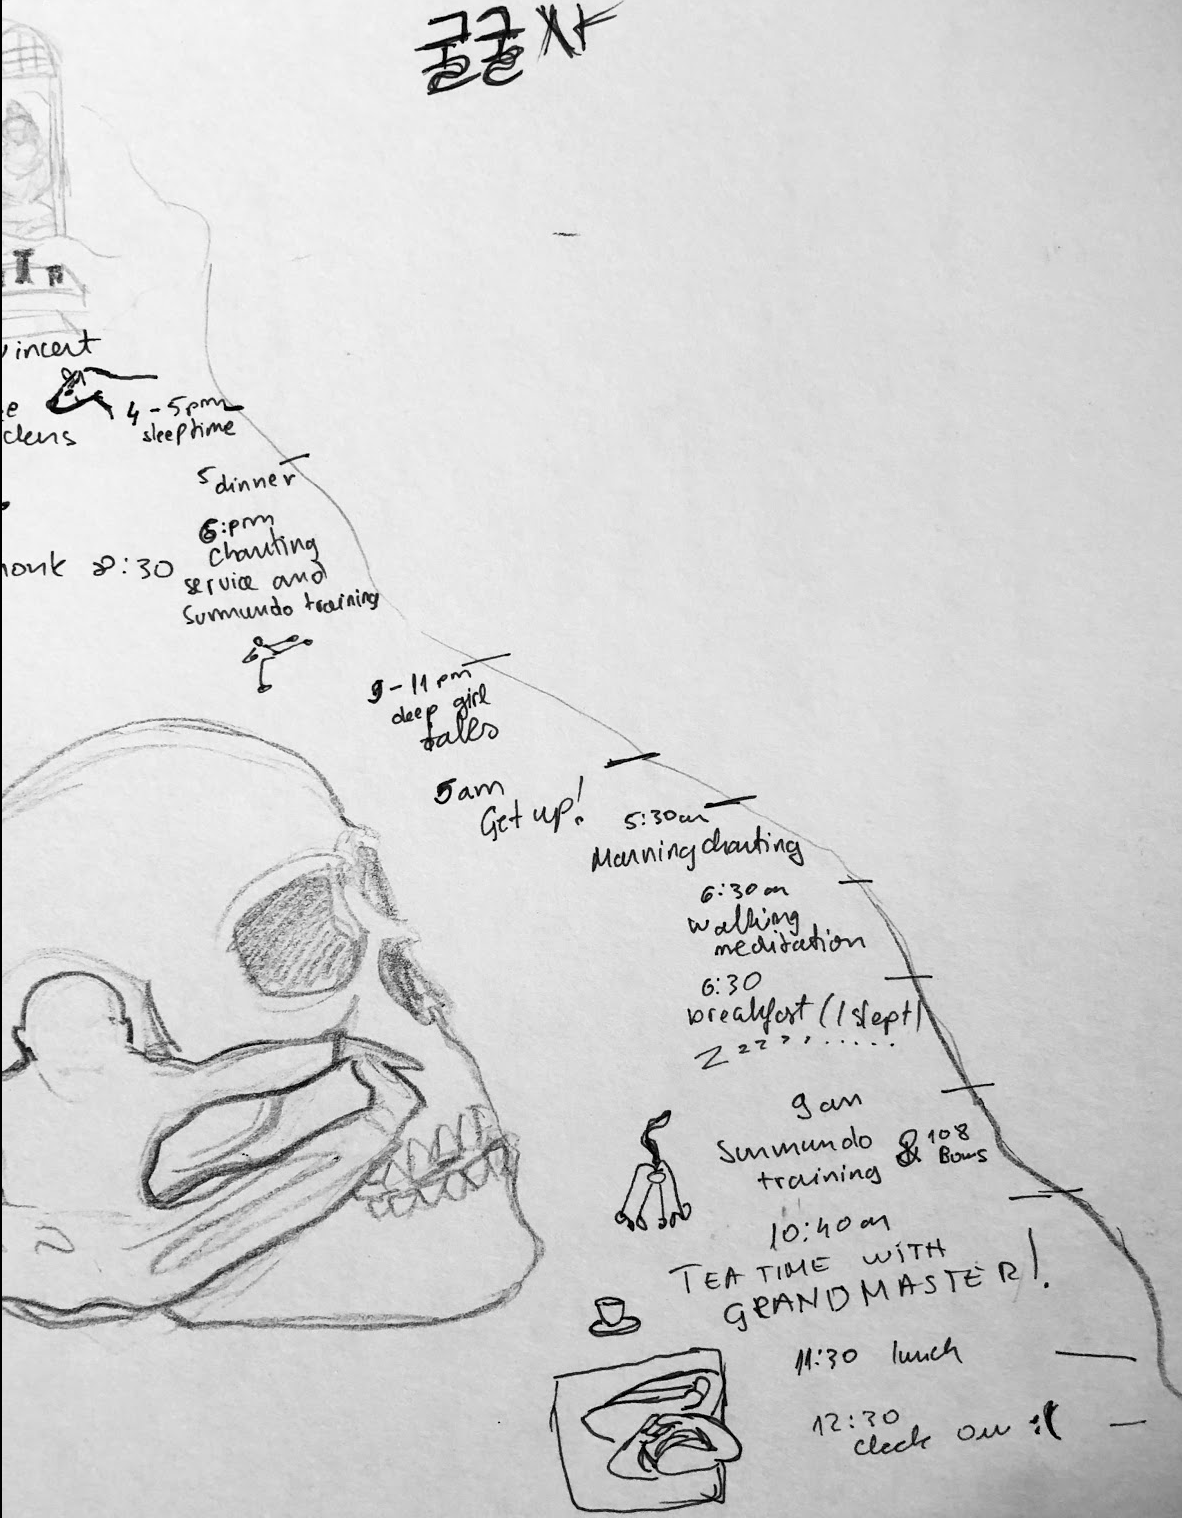 굴굴사
incent
4-5pm
sleeptime
dens
5 dinner
6:pm
chanting
8:30
service and
Sunmundo training
9-11 pm
deep girl
talks
5am
Get up!
5:30am
Morning chanting
6:30 am
walking
meditation
6:30
breakfast (I slept)
Zzzzz.....
9 am
Sunmundo
training & 108
Bows
10:40 am
TEA TIME WITH
GRANDMASTER!
11:30 lunch
12:30
check ou :(